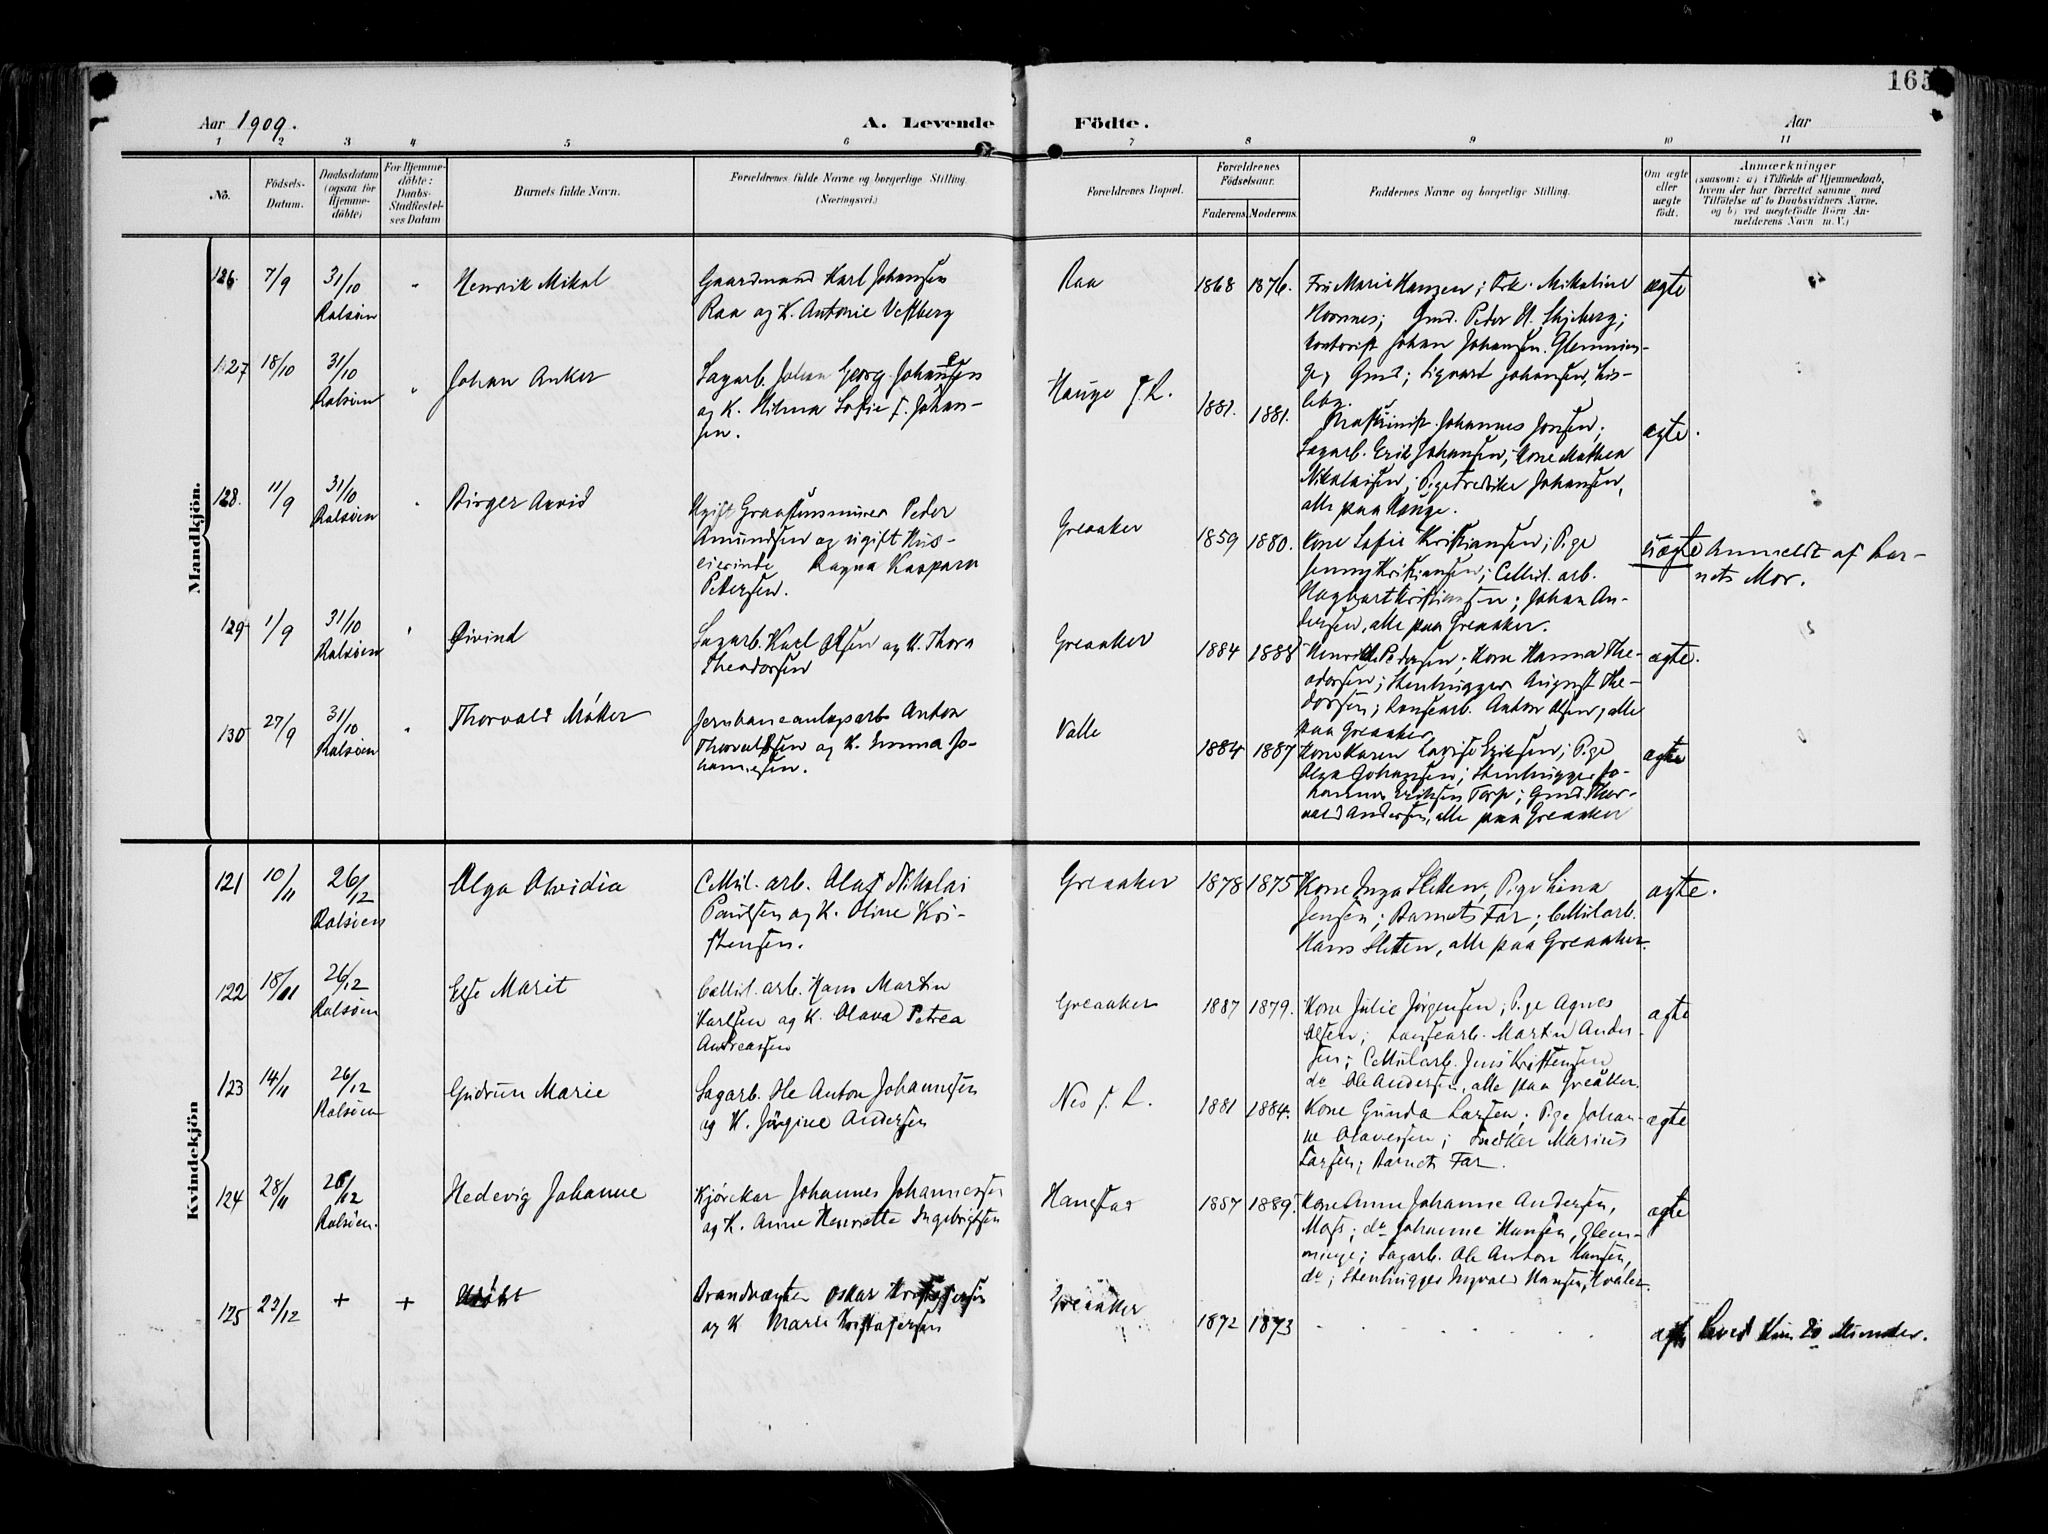 165
Aar 1909.
A. Levende
Födte.
Aar
1 2 3 4 5 6 7 8 9 10 11
No.
Födsels-
Datum.
Daabsdatum
(ogsaa for
Hjemme-
döbte)
For Hjemme-
döbte:
Daabs-
Stadfæstel-
ses Datum
Barnets fulde Navn.
Forældrenes fulde Navne og borgerlige Stilling.
(Næringsvei.)
Forældrenes Bopæl.
Forældrenes
Födselsaar.
Faderens.
Moderens.
Faddernes Navne og borgerlig Stilling.
Om ægte
eller
uægte
födt.
Anmærkninger
(saasom: a) i Tilfælde af Hjemmedaab,
hvem der har forrettet samme med
Tilföielse af to Daabsvidners Navne,
og b) ved uægtefödte Börn An-
melderens Navn m. V.)
Mandkjön.
126. 7/9 31/10
Rolsøien
Henrik Mikal
Gaardmand Karl Johansen
Raa og K. Antonie Vestberg
Raa
1868 1876.
Fru Marie Hansen; Frk. Mikaline
Hornnes; Gmd. Peder H. Skjeberg;
Kontorist Johan Johansen Glemmin-
ge; Gmd; Sigvart Johansen, Lis-
leby.
ægte
127 18/10 31/10
Rolsøien
Johan Anker
Sagarb. Johan Georg Johansen
og K. Hilma Sofie f. Johan-
sen.
Hauge f. R.
1881. 1881.
Maskinist Johannes Jonsen;
Sagarb. Erik Johansen; Kone Mathea
Nikolaisen; Pige Fredrikke Johansen,
alle paa Hauge.
ægte.
128. 11/9 31/10
Rolsøien
Birger Arvid
Ugift Graastensmurer Peder
Amundsen og ugift Hus-
eierinde Ragna Kaspara
Petersen.
Greaaker
1859 1880.
Kone Sofie Kristiansen; Pige
Jenny Kristiansen; Cellul. arb.
Hagbart Kristiansen; Johan An-
dersen, alle paa Greaaker.
uægte
Anmeldt af bar-
nets Mor.
129 1/9 31/10
Rolsøien
Øivind
Sagarb. Karl Olsen og K. Thora
Theodorsen
Greaaker
1884 1888
Henrik Pedersen; Kone Hanna The-
odorsen; Stenhugger August The-
dorsen; Løsearb. Anton Olsen, alle
paa Greaaker
ægte.
130 27/9 31/10
Rolsøien
Thorvald Møker
Jernbaneanlægsarb Anton
Thorvaldsen og K. Emma Jo-
hannesen.
Valle
1884 1887
Kone Karen Lovise Eriksen; Pige
Olga Johansen; Stenhugger Jo-
hannes Eriksen Torp; Gmd. Thor-
vald Andersen, alle paa Greaaker
ægte
Kvindekjön
121 10/11 26/12
Rolsøien
Olga Alvidia
Cellul. arb. Olaf Nikolai
Paulsen og K. Oline Kri-
stensen.
Greaaker
1878 1875
Kone Inga Sletten; Pige Lina
Jensen; Barnets Far; Cellul arb.
Hans Sletten, alle paa Greaaker.
ægte.
122 18/11 26/12
Rolsøien
Else Marit
Cellul. arb. Hans Martin
Karlsen og K. Olava Petrea
Andreassen
Greaaker
1887 1879.
Kone Julie Jørgensen; Pige Agnes
Olsen; Løsearb. Martin Ander-
sen; Cellularb. Jens Kristensen
do Ole Andersen, alle paa Greåker.
ægte
123 14/11 26/12
Rolsøien
Gudrun Marie
Sagarb. Ole Anton Johannesen
og K. Jørgine Andersen
Nes f. R.
1881 1884.
Kone Gunda Larsen; Pige Johan-
ne Olavesen; Snedker Marius
Larsen; Barnets Far.
ægte
124 28/11 26/12
Rolsøien.
Hedevig Johanne
Kjørekar Johannes Johannessen
og K. Anne Henriette Ingebrigtsen
Hanstad
1887 1889.
Kone Anne Johanne Andersen,
Moss; do Johanne Hansen, Glem-
minge; Sagarb. Ole Anton Hansen,
do; Stenhugger Ingvald Hansen, Hvaler.
ægte
125 22/12 + +
Udøbt
Brandvægter Oskar Kristoffersen
og K Marie Kristofersen
Greaaker
1872 1873
ægte
Levet kun 20 Minuder.